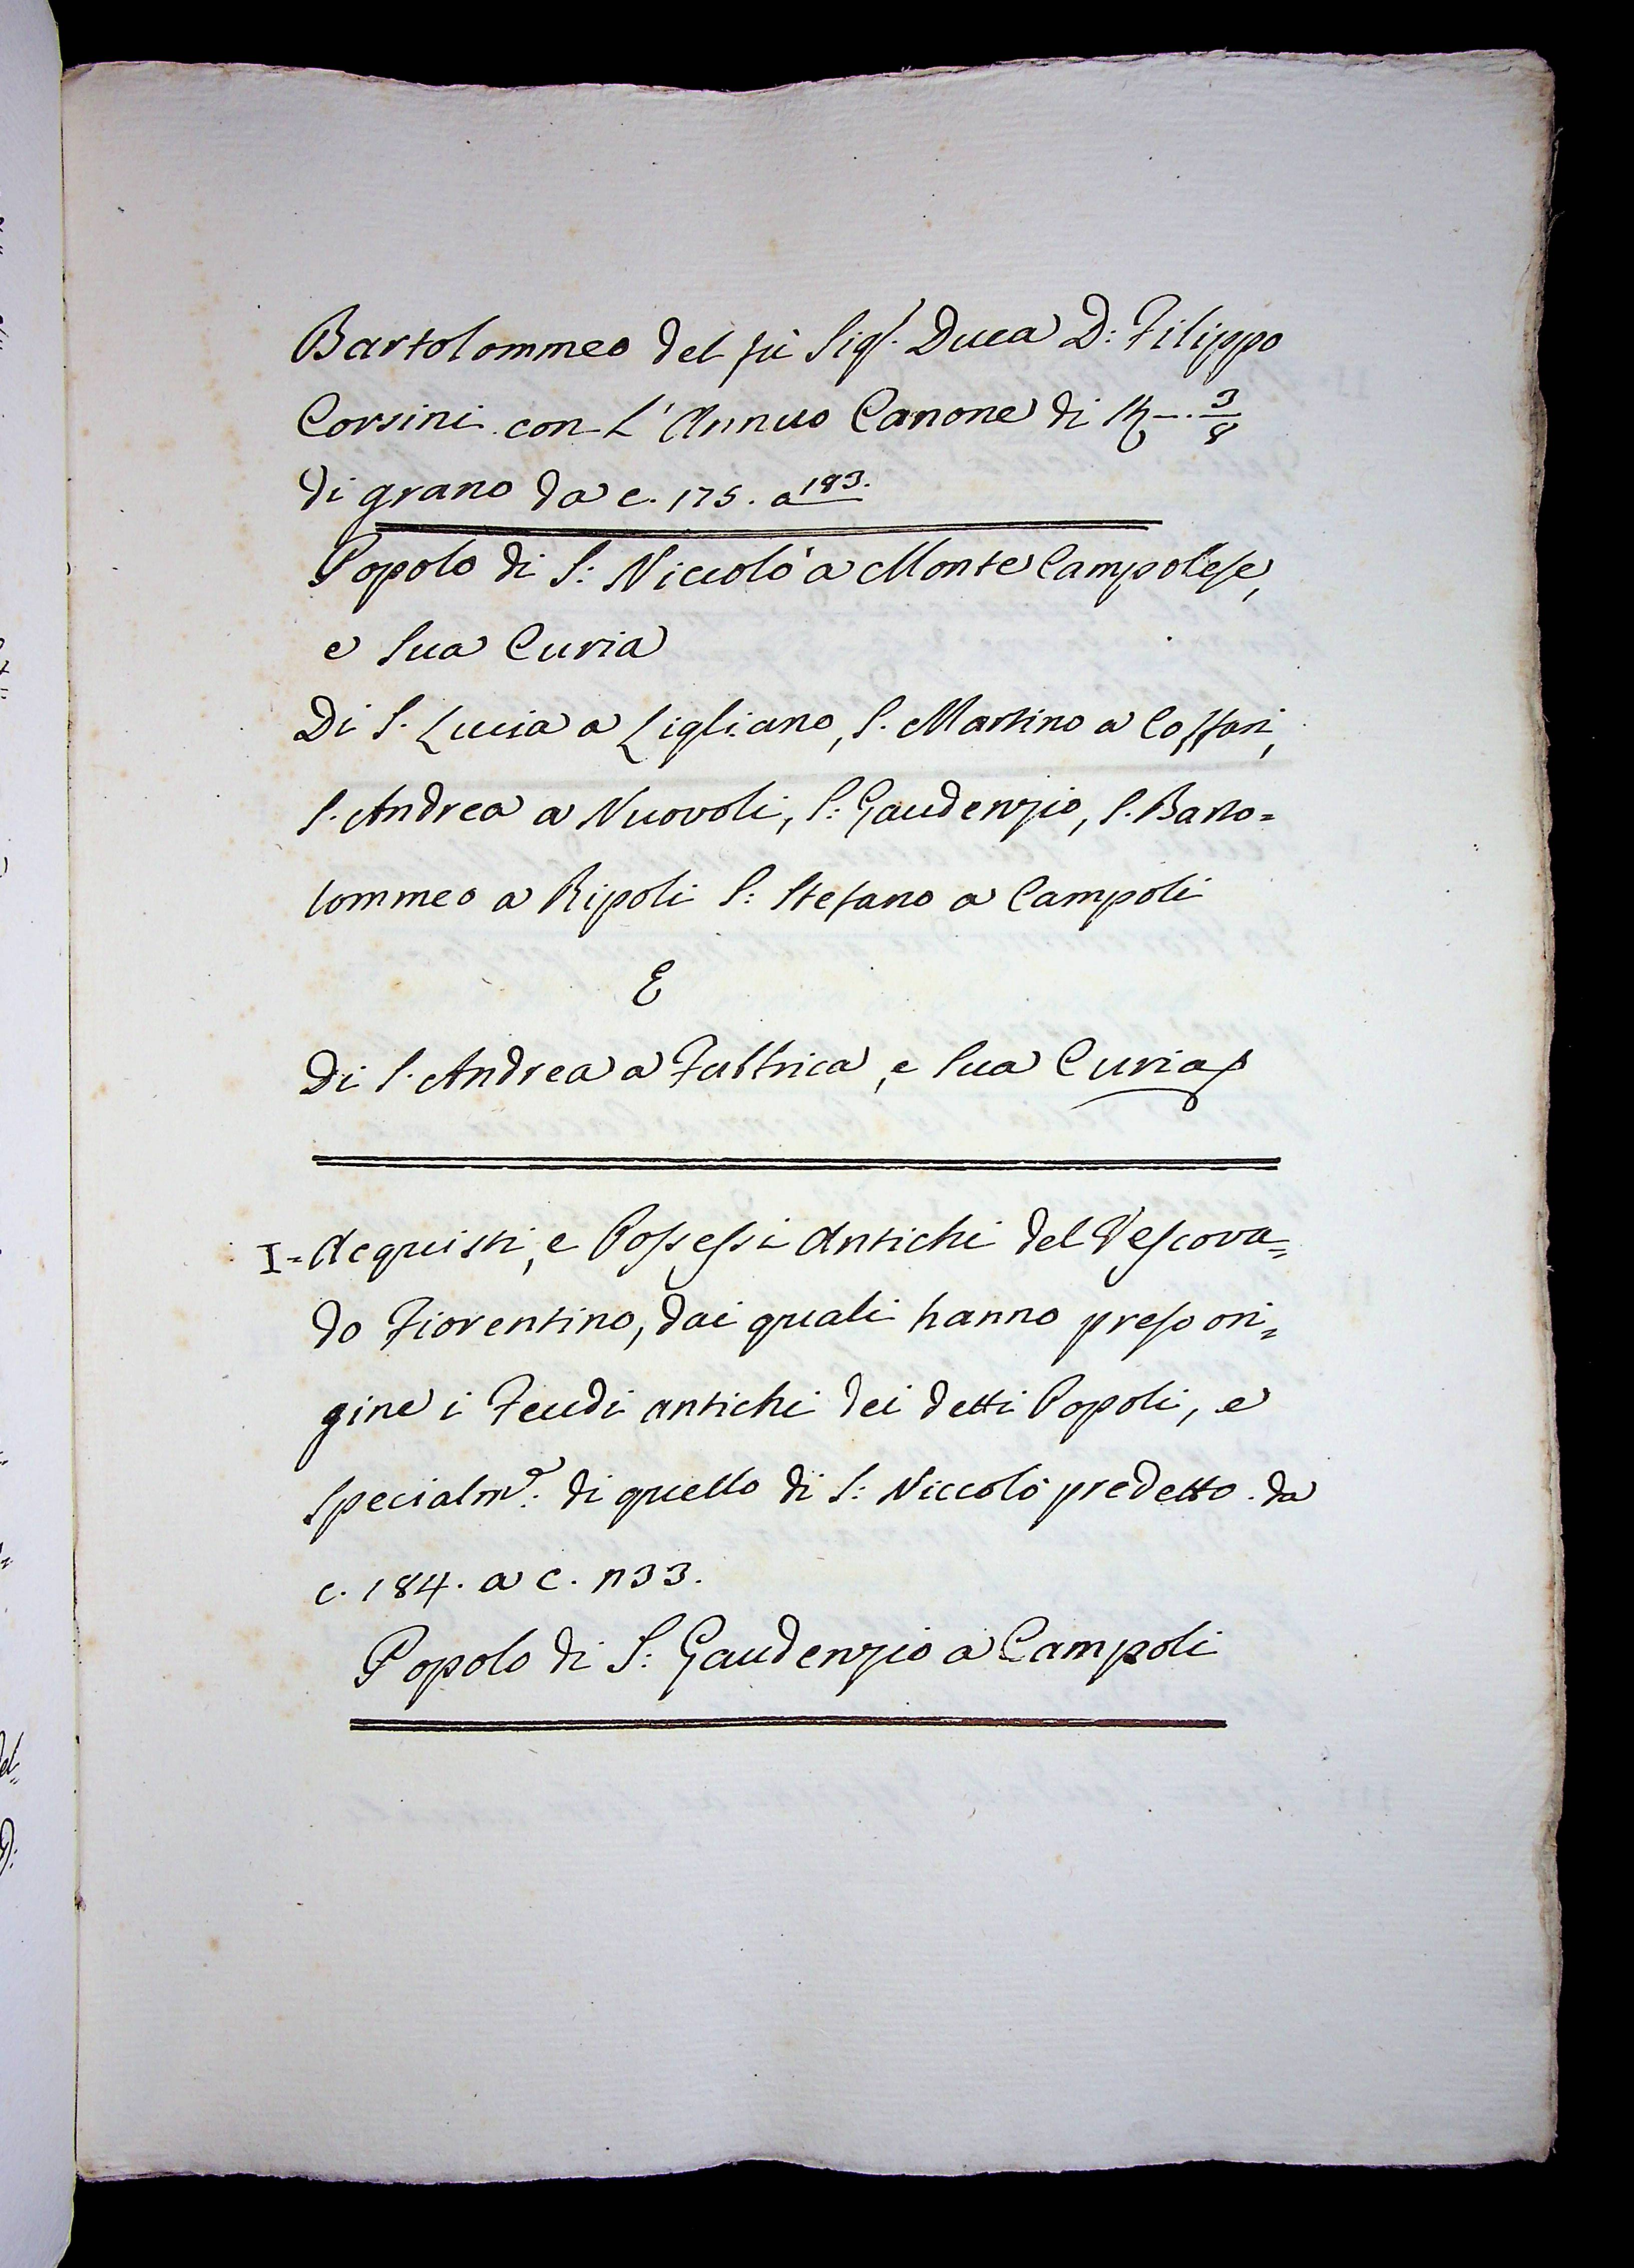 Bartolommeo del fù Sig.r Duca D: Filippo
Corsini con L'Annuo Canone di 3/8
di grano da c. 175. a 183.
Popolo di S: Niccolò a Monte Campolese,
e Sua Curia
Di S. Lucia a Ligliano, S. Martino a Cofferi,
S. Andrea a Nuovoli, S: Gaudenzio, S. Barto=
lommeo a Ripoli S: Stefano a Campoli
E
Di S. Andrea a Fabbrica, e Sua Curia
I= Acquisti, e Possessi Antichi del Vescova=
do Fiorentino, dai quali hanno preso ori=
gine i Feudi antichi dei detti Popoli, e
specialm.e: di quello di S: Niccolò predetto da
c. 184. a c.
Popolo di S: Gaudenzio a Campoli